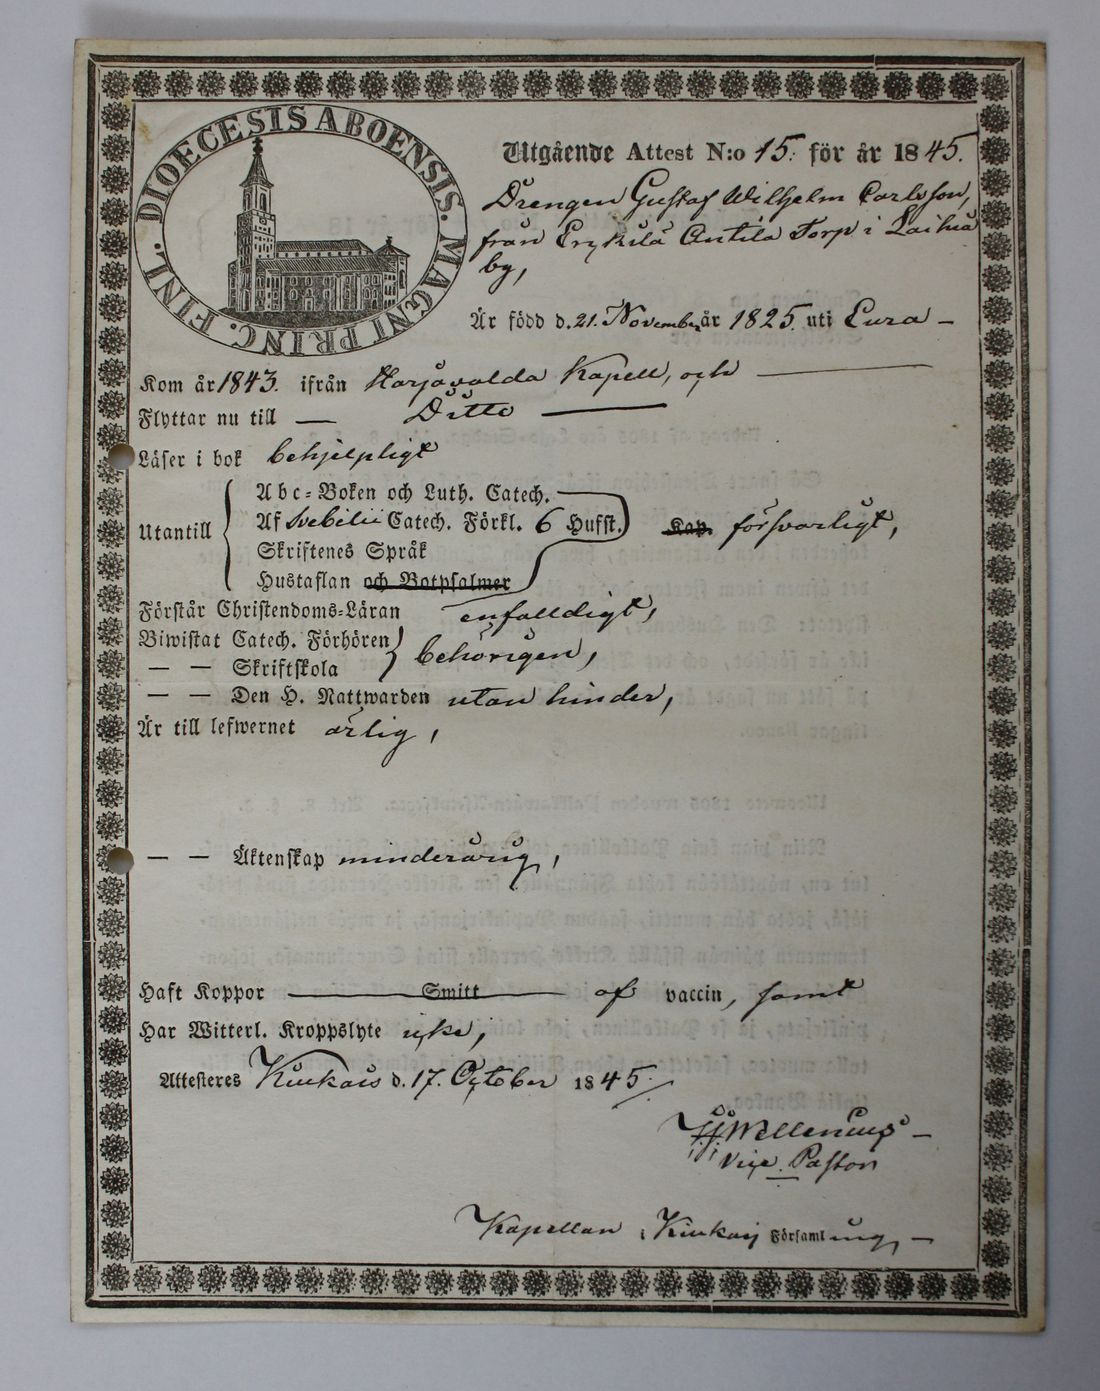 DIOECESIS ABOENSIS. MAGNI PRINC. FINL.
Utgående Attest N:o 15. för år 1845.
Drengen Gustaf Wilhelm Carlsson,
från Erykilä Antila Torp i Laihia
by,
Är född d. 21. November år 1825. uti Eura –
Kom år 1843. ifrån Harjavalda Kapell, och —
Flyttar nu till — Ditto —
Läser i bok behjelpligt
Abc-Boken och Luth. Catech.
Utantill Af Svebilii Catech. Förkl. 6 Hufst. försvarligt,
Skriftenes Språk
Hustaflan och Botpsalmer
Förstår Christendoms-Läran enfalldigt,
Biwistat Catech. Förhören
— — Skriftskola behörigen,
— — Den H. Nattwarden utan hinder,
Är till lefwernet ärlig,
— — Äktenskap minderårig,
Haft Koppor Smitt af vaccin, samt
Har Witterl. Kroppslyte icke,
Attesteres Kiukais d. 17. October 1845.
Wellenius –
Vice Pastor
Kapellan i Kiukais Församling, –